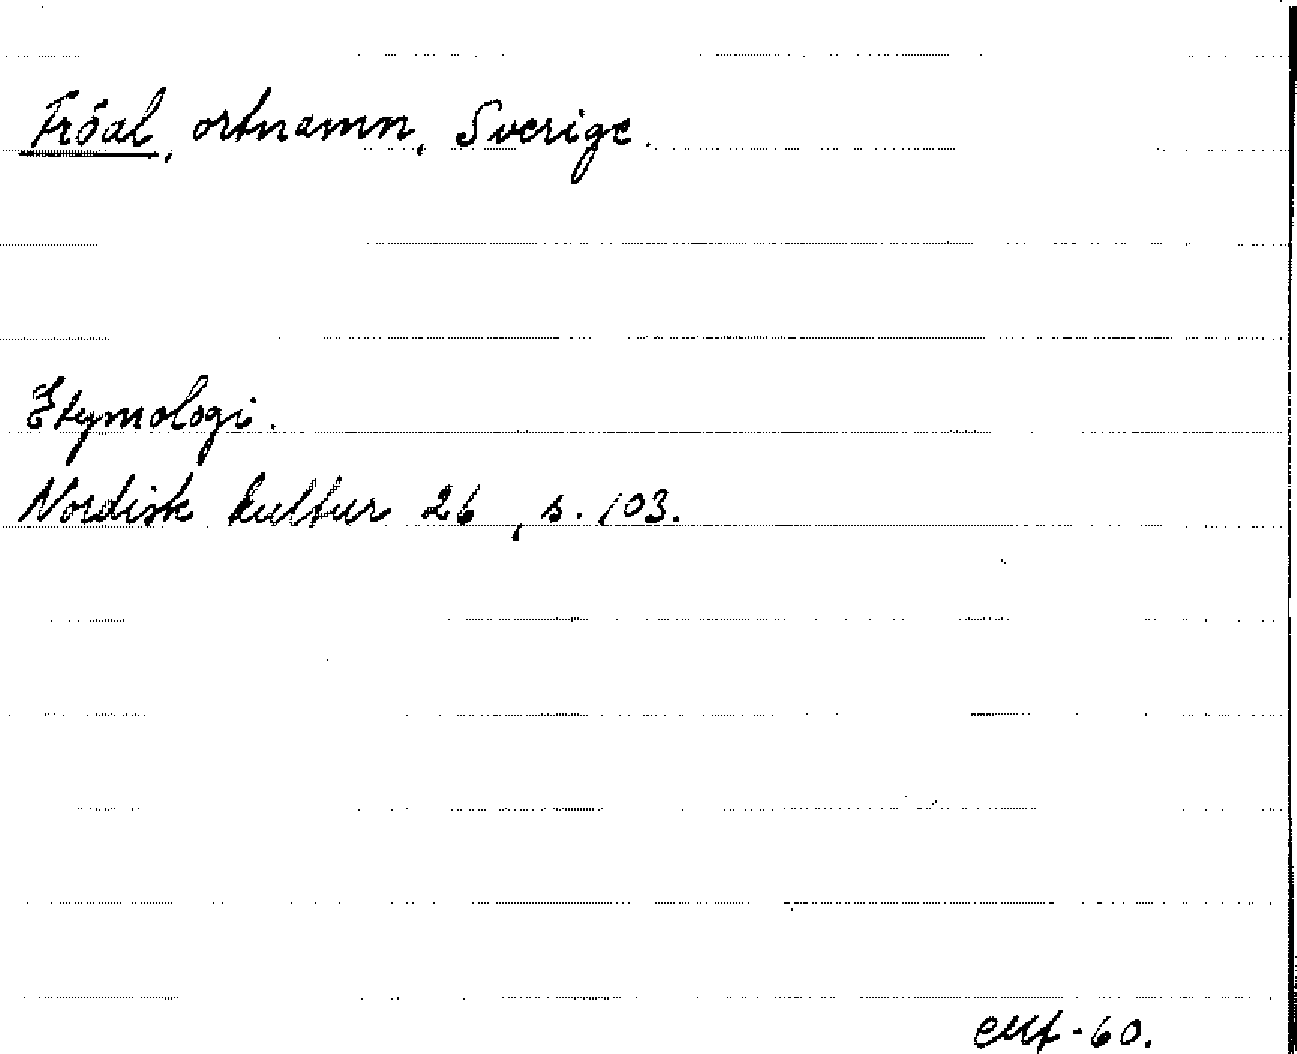 Fröal, ortnamn, Sverige.
Etymologi.
Nordisk kultur 26, s. 103.
-60.